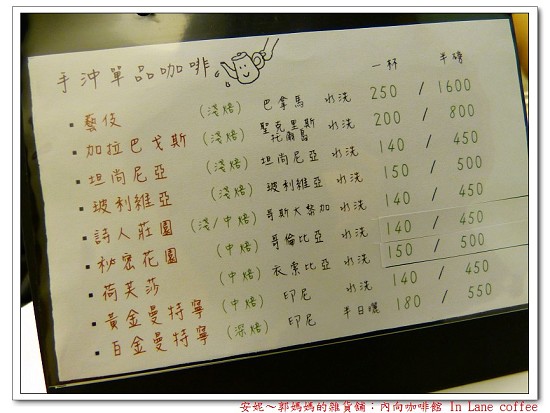 手沖單品咖啡 一杯 半磅
藝伎 (淺焙) 巴拿馬 水洗 250 / 1600
加拉巴戈斯 (淺焙) 聖克里斯托爾島 水洗 200 / 800
坦尚尼亞 (淺焙) 坦尚尼亞 水洗 140 / 450
玻利維亞 (淺焙) 玻利維亞 水洗 150 / 500
詩人莊園 (淺/中焙) 哥斯大黎加 水洗 140 / 450
祕密花園 (中焙) 哥倫比亞 水洗 140 / 450
荷芙莎 (中焙) 衣索比亞 水洗 150 / 500
黃金曼特寧 (中焙) 印尼 水洗 140 / 450
百金曼特寧 (深焙) 印尼 半日曬 180 / 550
安妮～郭媽媽的雜貨舖：內向咖啡館 In Lane coffee